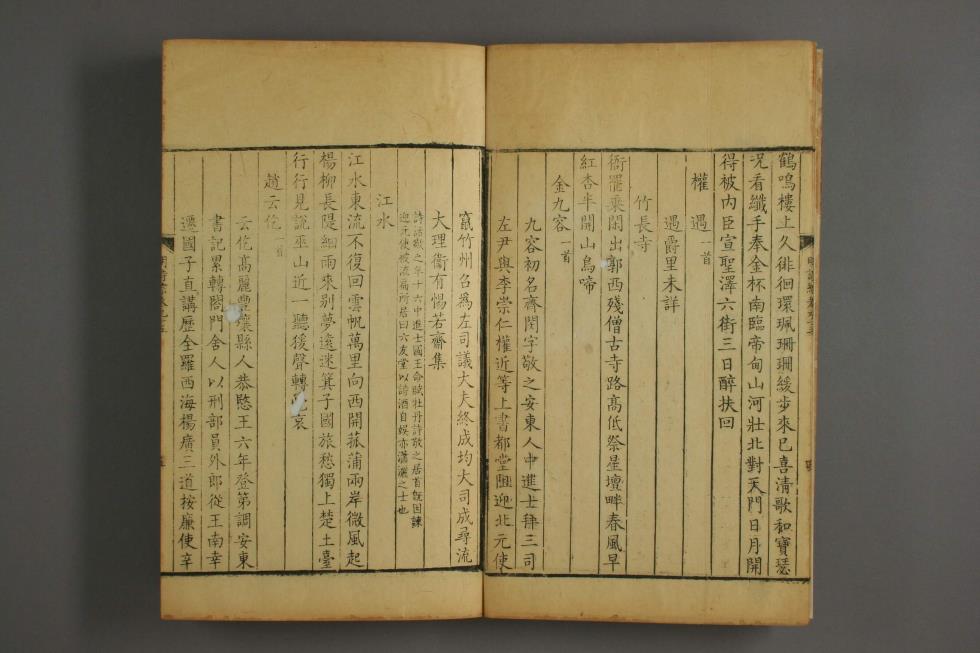 鶴鳴樓上久徘徊環珮珊珊緩步來已喜清歌和寶瑟
況看纖手奉金杯南臨帝甸山河壯北對天門日月開
得被內臣宣聖澤六街三日醉扶回
權遇一首
遇爵里未詳
竹長寺
衙罷乘閑出郭西殘僧古寺路高低祭星壇畔春風早
紅杏半開山鳥啼
金九容一首
九容初名齊閔字敬之安東人中進士肄三司
左尹與李崇仁權近等上書都堂阻迎北元使
竄竹州召為左司議大夫終成均大司成尋流
大理衛有惕若齋集
詩話敬之年十六中進士國王命賦牡丹詩敬之居首旣因諫
迎元使被流扁所居曰六友堂以詩酒自娛亦瀟灑之士也
江水
江水東流不復回雲帆萬里向西開菰蒲兩岸微風起
楊柳長隄細雨來別夢遠迷箕子國旅愁獨上楚王臺
行行見說巫山近一聽猨聲轉哀
趙云仡一首
云仡高麗豐壤縣人恭愍王六年登第調安東
書記累轉閤門舍人以刑部員外郎從王南幸
遷國子直講歷全羅西海楊廣三道按廉使辛